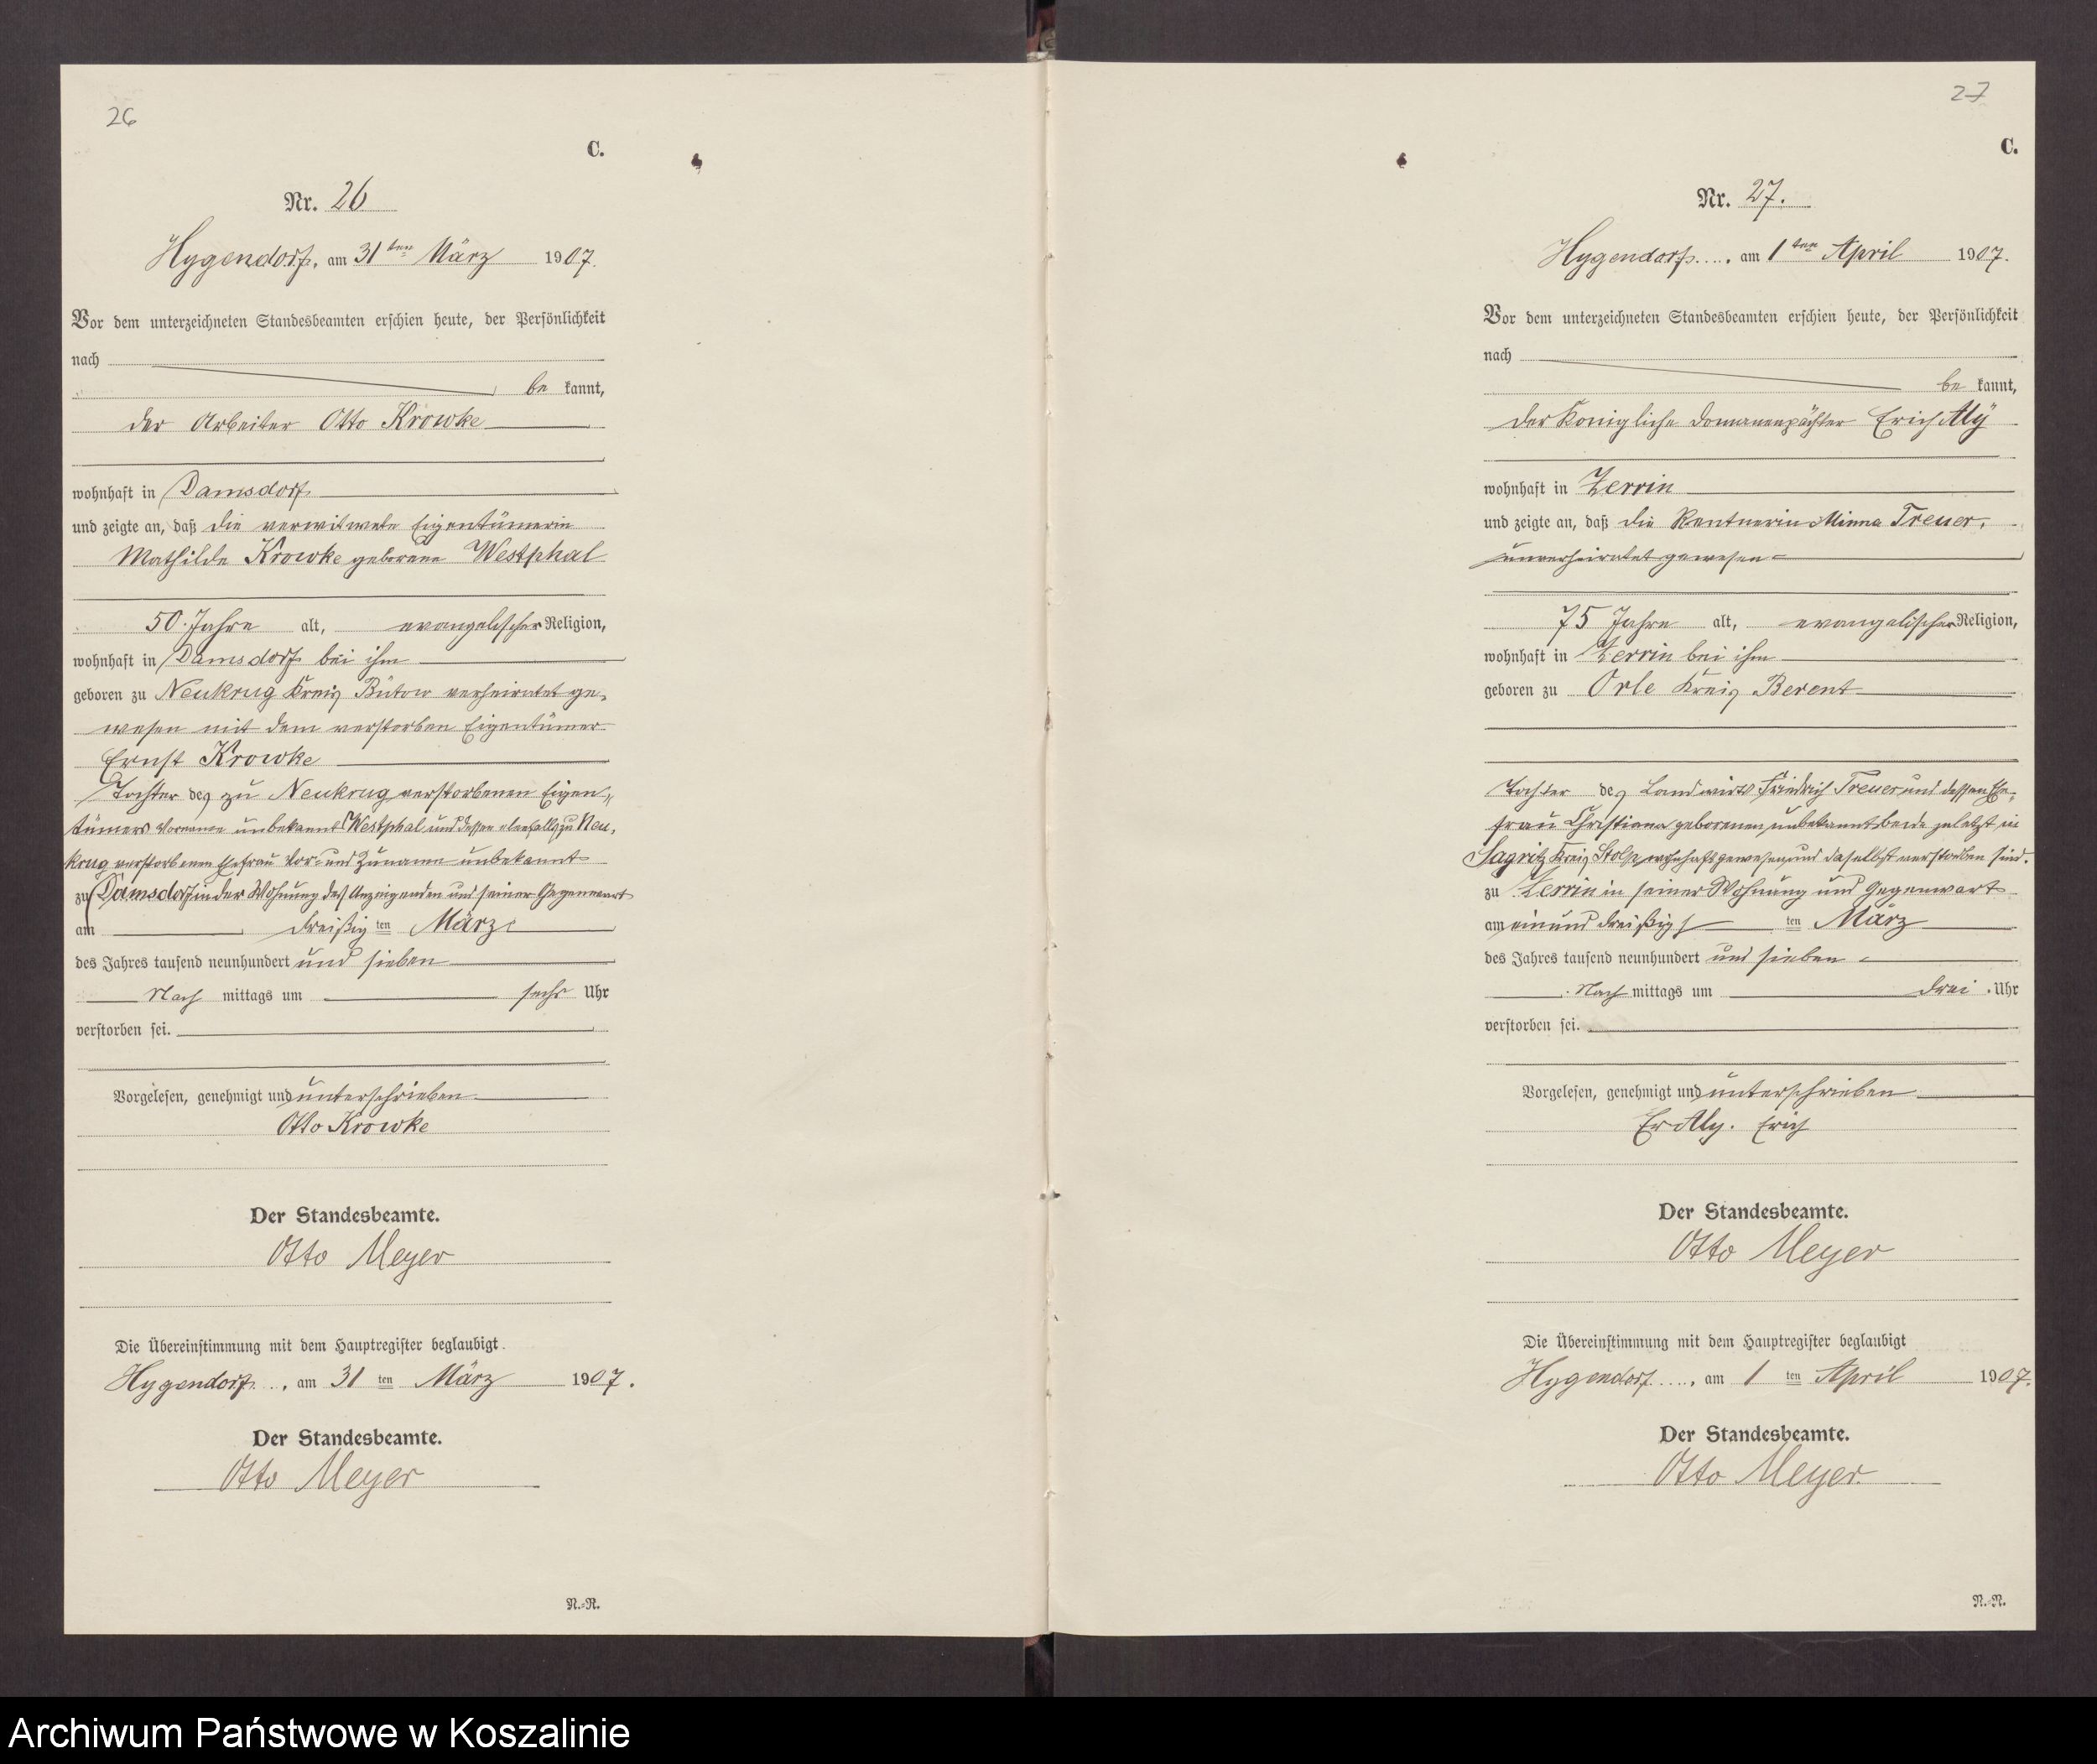 26
C.
Nr. 26
Hygendorf, am 31ten März 1907.
Vor dem unterzeichneten Standesbeamten erschien heute, der Persönlichkeit
nach
be kannt,
der Arbeiter Otto Krowke
wohnhaft in Damsdorf
und zeigte an, daß die verwitwete Eigentümerin
Mathilde Krowke geborene Westphal
50 Jahre alt, evangelischer Religion,
wohnhaft in Damsdorf bei ihm
geboren zu Neukrug Kreis Bütow verheiratet ge-
wesen mit dem verstorben Eigentümer
Ernst Krowke
Tochter des zu Neukrug verstorbenen Eigen-
tümers Vorname unbekannt Westphal und dessen ebenfalls zu Neu-
krug verstorbenen Ehefrau Vor- und Zuname unbekannt
zu Damsdorf in der Wohnung des Anzeigenden und seiner Gegenwart
am dreißig ten März
des Jahres tausend neunhundert und sieben
Nach mittags um sechs Uhr
verstorben sei.
Vorgelesen, genehmigt und unterschrieben
Otto Krowke
Der Standesbeamte.
Otto Meyer
Die Übereinstimmung mit dem Hauptregister beglaubigt.
Hygendorf, am 31 ten März 1907.
Der Standesbeamte.
Otto Meyer
N.=R.
27
C.
Nr. 27.
Hygendorf, am 1ten April 1907.
Vor dem unterzeichneten Standesbeamten erschien heute, der Persönlichkeit
nach
be kannt,
der Königliche Domänenpächter Erich Aly
wohnhaft in Zerrin
und zeigte an, daß die Rentnerin Minna Treuer,
unverheiratet gewesen
75 Jahre alt, evangelischer Religion,
wohnhaft in Zerrin bei ihm
geboren zu Orle Kreis Berent
Tochter des Landwirts Friedrich Treuer und dessen Ehe-
frau Christiana geborenen unbekannt beide zuletzt in
Sagritz Kreis Stolp wohnhaft gewesen und daselbst verstorben sind.
zu Zerrin in seiner Wohnung und Gegenwart
am einund dreißigs ten März
des Jahres tausend neunhundert und sieben
Nach mittags um drei Uhr
verstorben sei.
Vorgelesen, genehmigt und unterschrieben
Aly. Erich
Der Standesbeamte.
Otto Meyer
Die Übereinstimmung mit dem Hauptregister beglaubigt
Hygendorf, am 1 ten April 1907.
Der Standesbeamte.
Otto Meyer
N.=R.
Archiwum Państwowe w Koszalinie